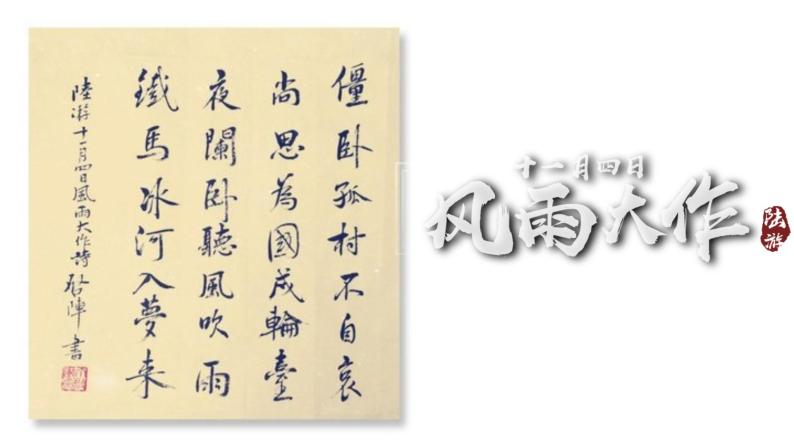 僵卧孤村不自哀
尚思為國戍輪臺
夜闌卧聽風吹雨
鐵馬冰河入夢来
陸游十一月四日風雨大作詩 啓陣書
十一月四日
风雨大作
陆游